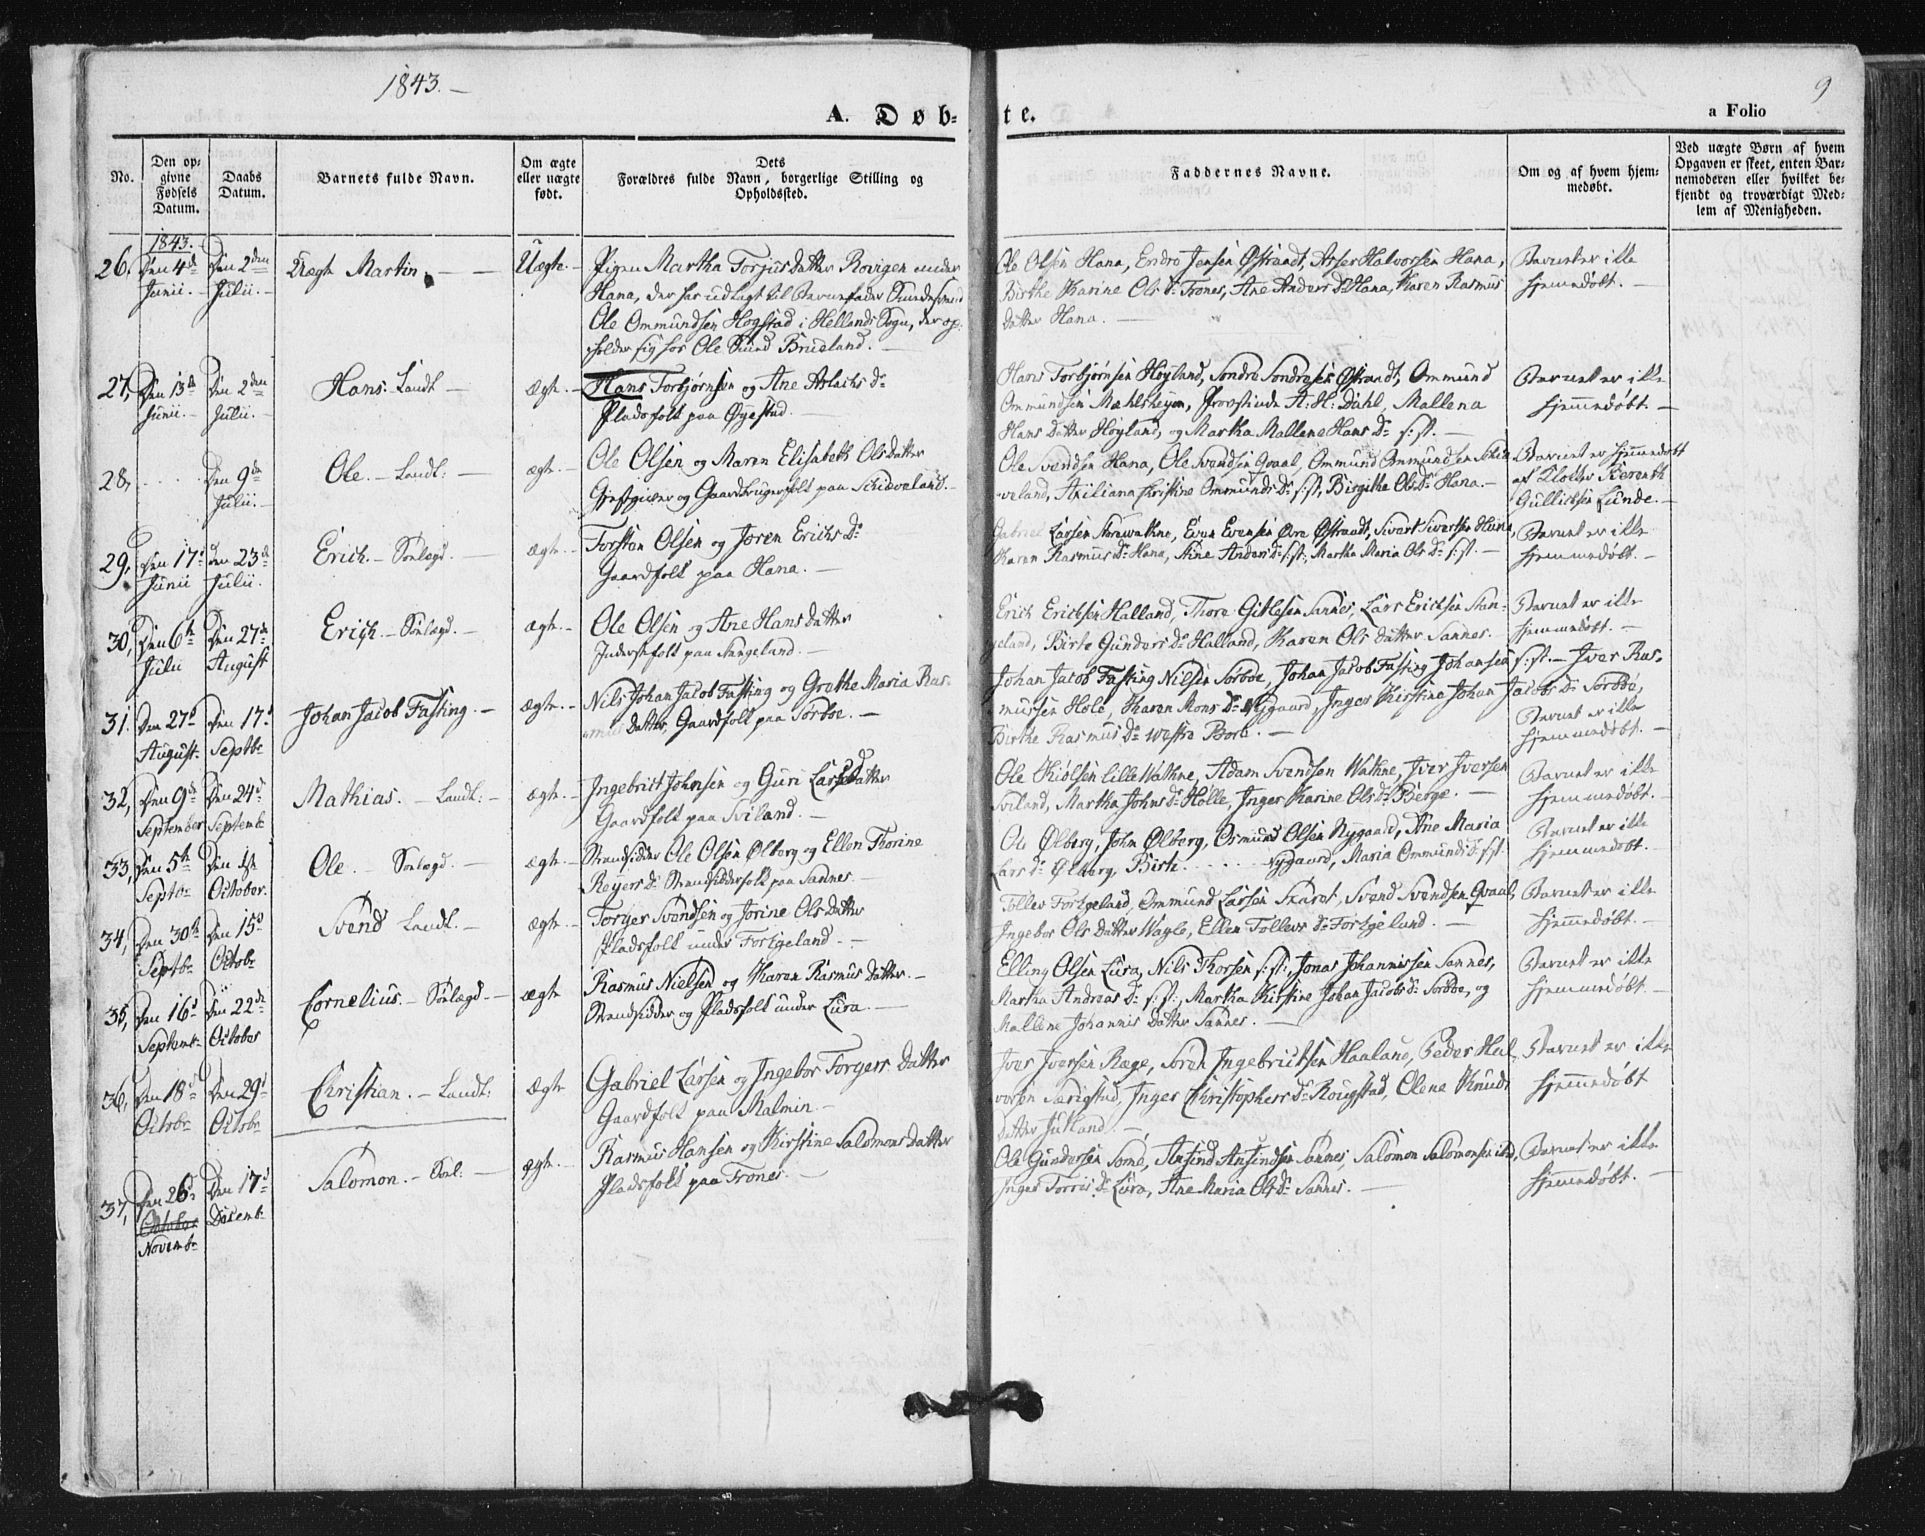 1843.
9
A. Døb-
te.
a Folio
No.
Den op-
givne
Fødsels
Datum.
Daabs
Datum.
Barnets fulde Navn.
Om ægte
eller uægte
født.
Dets
Forældres fulde Navn, borgerlige Stilling og
Opholdssted.
Faddernes Navne.
Om og af hvem hjem-
medøbt.
Ved uægte Børn af hvem
Opgaven er skeet, enten Bar-
nemoderen eller hvilket be-
kjendt og troværdigt Med-
lem af Menigheden.
1843.
26. Den 4de Den 2den Uægte Martin Uægte Pigen Martha Torjusdatter Rovigen under
Junii. Julii. Hana, der har udlagt til Barnefader
Ole Ommundsen Hogstad i Hellands Sogn, der op-
holder sig hos Ole Brueland.
Ole Olsen Hana, Endre Jensen Østraadt, Asser Halvorsen Hana,
Birthe Karine Ols D. Trones, Ane Anders D. Hana, Karen Rasmus
datter Hana.
Barnet er ikke
hjemmedøbt.
27, Den 13de Den 2den Hans. Landt. ægte Hans Torbjørnsen og Ane Aslachs Dr
Junii. Julii. Pladsfolk paa Øyestad.
Hans Torbjørnsen Høyland, Sondre Sondresen Østraadt, Ommund
Ommundsen Mæhlsheyen, Provstinde A: H: Dahl, Mallena
Hans Datter Høyland, og Martha Mallene Hans Dr s: st.
Barnet er ikke
hjemmedøbt.
28, Den 9de Ole. Landt: ægte Ole Olsen og Maren Elisabeth Olsdatter
Julii. Gjestgiver og Gaardbrugerfolk paa Schieveland.
Ole Svendsen Hana, Ole Svendsen Qvaal, Ommund Ommundsen Schie
veland, Christine Ommunds Dr s: st, Birgithe Ols Dr Hana.
Barnet er hjemmedøbt
af Klokker Berenth
Gullichsen Lunde.
29, Den 17de den 23de Erich. Sønlægd. ægte Torsten Olsen og Joren Erichs Dr
Junii Julii. Gaardfolk paa Hana.
Gabriel Larsen Evon Evensen Øvre Østraadt, Sivert Sivertsen Hana,
Karen Rasmus Dr Hana, Stine Anders Dr s: st:, Martha Maria Ols Dr s: st.
Barnet er ikke
hjemmedøbt.
30, Den 6te Den 27de Erich. Sønlægd. ægte Ole Olsen og Ane Hansdatter
Julii August Inderstefolk paa Stangeland.
Erich Erichsen Halland, Thore Gitlesen Sannes, Lars Erichsen Stan-
geland, Birte Gunders Dr Halland, Karen Ols datter Sannes.
Barnet er ikke
hjemmedøbt.
31. Den 27de Den 17de Johan Jacob Fasting. ægte Nils Johan Jacob Fasting og Grethe Maria Ras-
August. Septbr mus Datter, Gaardfolk paa Sørboe.
Johan Jacob Fasting Nilsen Sørboe, Johan Jacob Fasting Johansen s: st. Iver Ras-
mussen Hole, Karen Mons Dr Nygaard, Inger Kirstine Johan Jacobs Dr Sørbø,
Birthe Rasmus Dr westre Bore.
Barnet er ikke
hjemmedøbt.
32, Den 9de Den 24de Mathias. Landt: ægte Ingebrict Johnsen og Guri Larsdatter
September Septembr Gaardfolk paa Sviland.
Ole Kiølsen lille Wathne, Adam Svendsen Wathne, Iver Iversen
Sviland, Martha Johns Dr Hølle, Inger Karine Ols Dr Berge.
Barnet er ikke
hjemmedøbt.
33, Den 5te Den 1ste Ole. Sønlægd. ægte Strandsidder Ole Olsen Ølberg og Ellen Thorine
Septbr October. Reyers Dr Strandsidderfolk paa Sannes.
Ole Ølberg, John Ølberg, Osmund Olsen Nygaard, Ane Maria
Lars Dr Ølberg, Birte Nygaard, Maria Ommunds Dr s: st.
Barnet er ikke
hjemmedøbt.
34, Den 30te Den 15de Svend Landt. ægte Torger Svendsen og Jorine Olsdatter
Septbr Octobr Pladsfolk under Fortgeland.
Tollev Fortgeland, Ommund Larsen Svend Svendsen Qvaal,
Ingebor Ols Datter Wagle, Ellen Tollevs Dr Fortgeland.
Barnet er ikke
hjemmedøbt.
35, Den 16de Den 22de Cornelius. Sønlægd. ægte Rasmus Nielsen og Karen Rasmus datter.
Septembr October Strandsidder og Pladsfolk under Lura.
Elling Olsen Lura, Nils Thorsen s: st:, Jonas Johannissen Sannes,
Martha Andreas Dr s: st:, Martha Kirstine Johan Jacobs Dr Sørboe, og
Mallene Johannis datter Sannes.
Barnet er ikke
hjemmedøbt.
36, Den 18de Den 29de Christian. Landt: ægte Gabriel Larsen og Ingebor Torgers datter
Octobr Octobr Gaardfolk paa Malmin.
Iver Iversen Rage, Søren Ingebrictsen Haaland, Peder Hal-
vorsen Inger Christophers Dr Rougstad, Olene Knuds
datter Jutland.
Barnet er ikke
hjemmedøbt
37, Den 26de Den 17de Salomon. Sønl: ægte Rasmus Hansen og Kirstine Salomons datter
October Decemb. Pladsfolk paa Trones.
Novembr
Ole Gundersen Somd, Ansind Ansindsen Sannes, Salomon Salomonsen
Inger Torris Dr Lura, Ane Maria Ols Dr Sannes.
Barnet er ikke
hjemmedøbt.